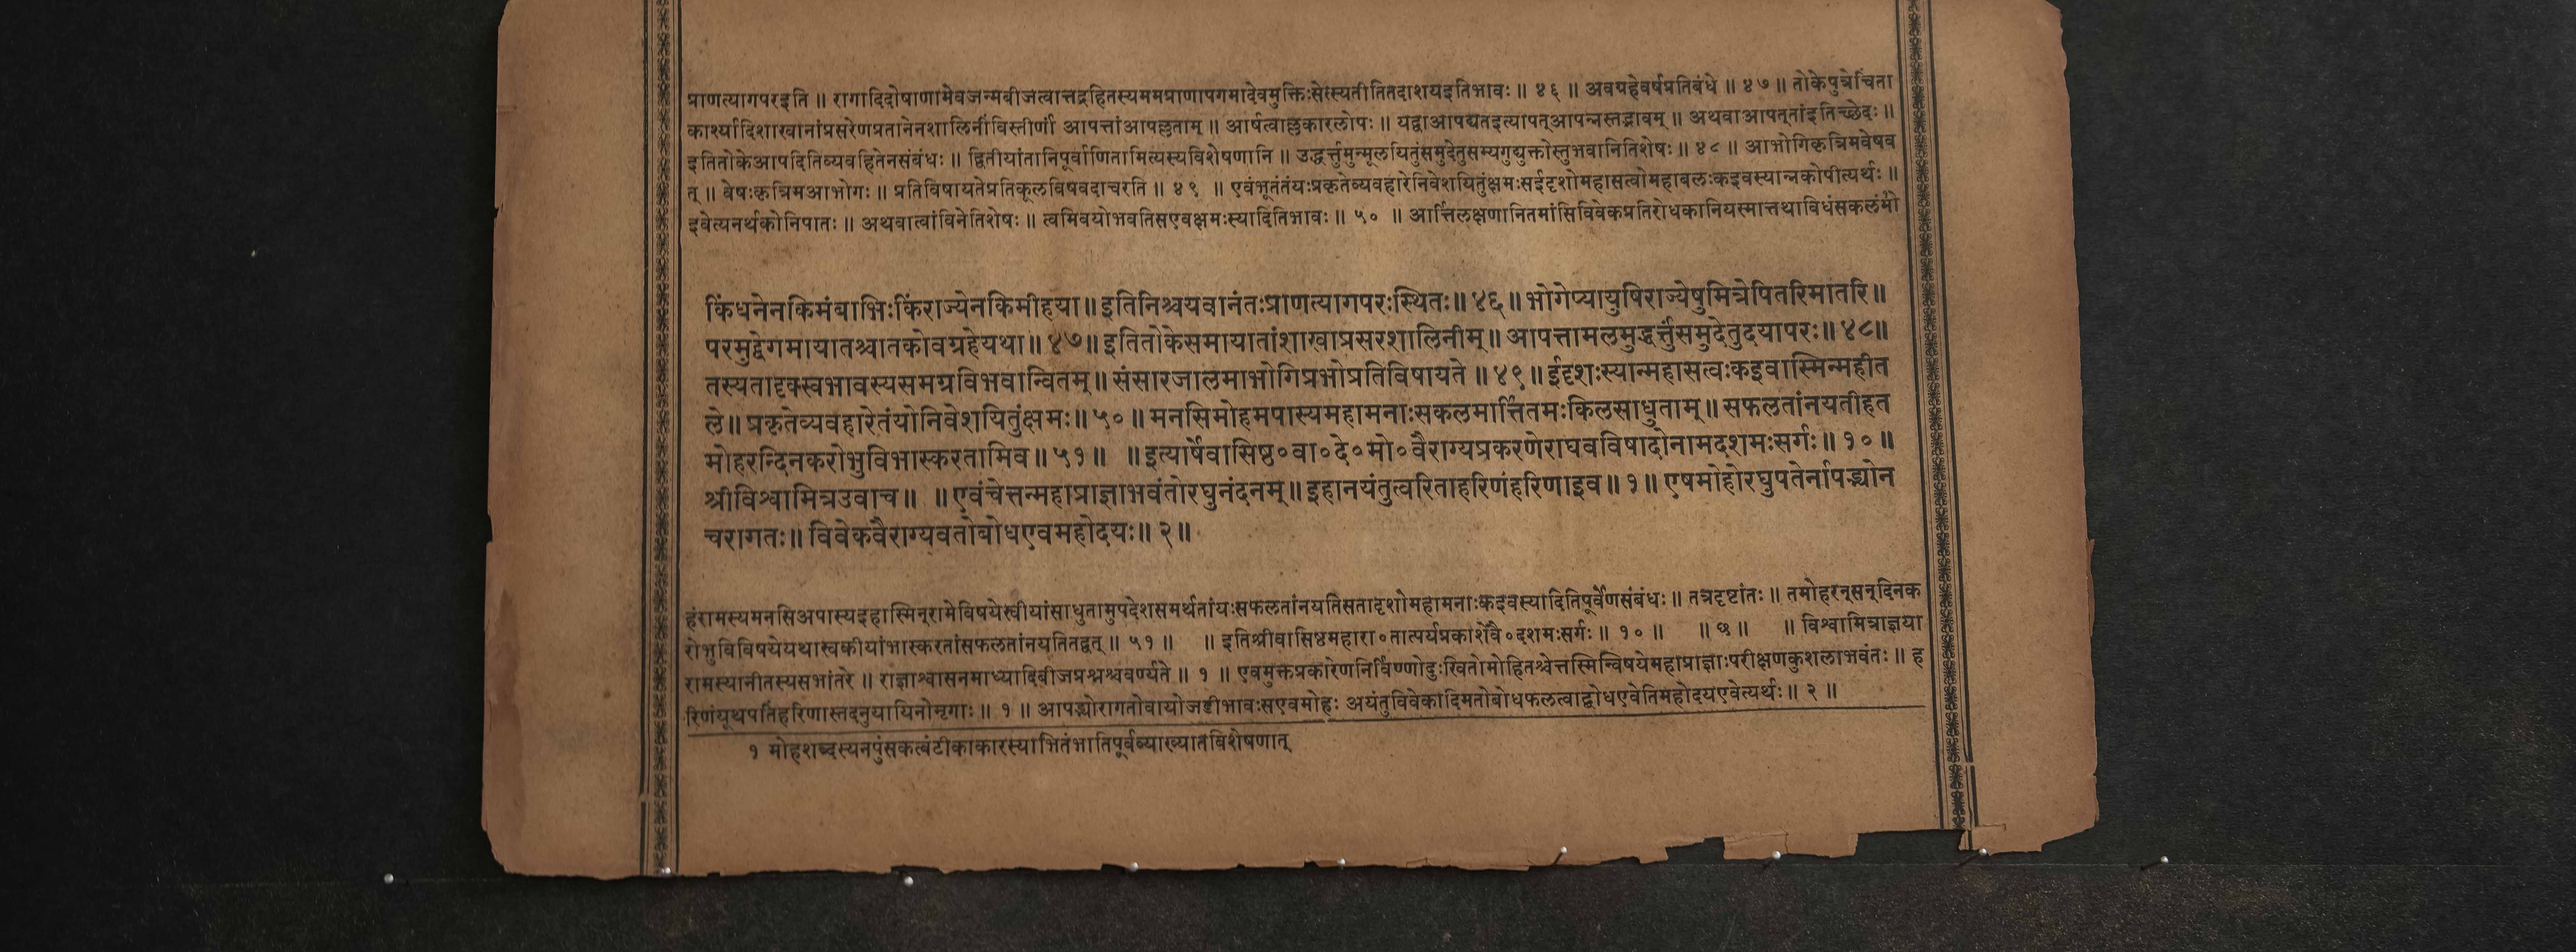 प्राणत्यागपरइति ॥ रागादिदोषाणामेवजन्मबीजत्वात्तद्रहितस्यममप्राणापगमादेवमुक्तिःसेत्स्यतीतितदाशयइतिभावः ॥ ४६ ॥ अवग्रहेवर्षप्रतिबंधे ॥ ४७ ॥ तोकेपुत्रेचिंता
कार्श्यादिशाखानांप्रसरेणप्रतानेनशालिनींविस्तीर्णां आपत्तांआपल्लताम् ॥ आर्षत्वाल्लकारलोपः ॥ यद्वाआपद्यतइत्यापत्आपन्नस्तद्भावम् ॥ अथवाआपत्तांइतिच्छेदः ॥
इतितोकेआपदितिव्यवहितेनसंबंधः ॥ द्वितीयांतानिपूर्वाणितामित्यस्यविशेषणानि ॥ उद्धर्त्तुमुन्मूलयितुंसमुदेतुसम्यगुद्युक्तोस्तुभवानितिशेषः ॥ ४८ ॥ आभोगिकृत्रिमवेषव
त् ॥ वेषःकृत्रिमआभोगः ॥ प्रतिविषायतेप्रतिकूलविषवदाचरति ॥ ४९ ॥ एवंभूतंतंयःप्रकृतेव्यवहारेनिवेशयितुंक्षमःसईदृशोमहासत्वोमहाबलःकइवस्यान्नकोपीत्यर्थः ॥
इवेत्यनर्थकोनिपातः ॥ अथवात्वांविनेतिशेषः ॥ त्वमिवयोभवतिसएवक्षमःस्यादितिभावः ॥ ५० ॥ आर्त्तिलक्षणानितमांसिविवेकप्रतिरोधकानियस्मात्तथाविधंसकलंमो
किंधनेनकिमंबाभिःकिंराज्येनकिमीहया ॥ इतिनिश्चयवानंतःप्राणत्यागपरःस्थितः ॥ ४६ ॥ भोगेप्यायुषिराज्येषुमित्रेपितरिमातरि ॥
परमुद्वेगमायातश्चातकोवग्रहेयथा ॥ ४७ ॥ इतितोकेसमायातांशाखाप्रसरशालिनीम् ॥ आपत्तामलमुद्धर्त्तुंसमुदेतुदयापरः ॥ ४८ ॥
तस्यतादृक्स्वभावस्यसमग्रविभवान्वितम् ॥ संसारजालमाभोगिप्रभोप्रतिविषायते ॥ ४९ ॥ ईदृशःस्यान्महासत्वःकइवास्मिन्महीत
ले ॥ प्रकृतेव्यवहारेतंयोनिवेशयितुंक्षमः ॥ ५० ॥ मनसिमोहमपास्यमहामनाःसकलमार्त्तितमःकिलसाधुताम् ॥ सफलतांनयतीहत
मोहरन्दिनकरोभुविभास्करतामिव ॥ ५१ ॥ ॥ इत्यार्षेवासिष्ठ०वा०दे०मो०वैराग्यप्रकरणेराघवविषादोनामदशमःसर्गः ॥ १० ॥
श्रीविश्वामित्रउवाच ॥ ॥ एवंचेत्तन्महाप्राज्ञाभवंतोरघुनंदनम् ॥ इहानयंतुत्वरिताहरिणंहरिणाइव ॥ १ ॥ एषमोहोरघुपतेर्नापद्भ्योन
चरागतः ॥ विवेकवैराग्यवतोबोधएवमहोदयः ॥ २ ॥
हंरामस्यमनसिअपास्यइहास्मिन्‌रामेविषयेस्वीयांसाधुतामुपदेशसमर्थतांयःसफलतांनयतिसतादृशोमहामनाःकइवस्यादितिपूर्वेणसंबंधः ॥ तत्रदृष्टांतः ॥ तमोहरन्‌सन्‌दिनक
रोभुविविषयेयथास्वकीयांभास्करतांसफलतांनयतितद्वत् ॥ ५१ ॥ ॥ इतिश्रीवासिष्ठमहारा०तात्पर्यप्रकाशेवै०दशमःसर्गः ॥ १० ॥ ॥ छ ॥ ॥ विश्वामित्राज्ञया
रामस्यानीतस्यसभांतरे ॥ राज्ञाश्वासनमाध्यादिबीजप्रश्नश्चवर्ण्यते ॥ १ ॥ एवमुक्तप्रकारेणनिर्विण्णोदुःखितोमोहितश्चेत्तस्मिन्विषयेमहाप्राज्ञाःपरीक्षणकुशलाभवंतः ॥ ह
रिणंयूथपतिंहरिणास्तदनुयायिनोमृगाः ॥ १ ॥ आपद्भ्योरागतोवायोजडीभावःसएवमोहः अयंतुविवेकादिमतोबोधफलत्वाद्बोधएवेतिमहोदयएवेत्यर्थः ॥ २ ॥
१ मोहशब्दस्यनपुंसकत्वंटीकाकारस्याभितंभातिपूर्वव्याख्यातविशेषणात्